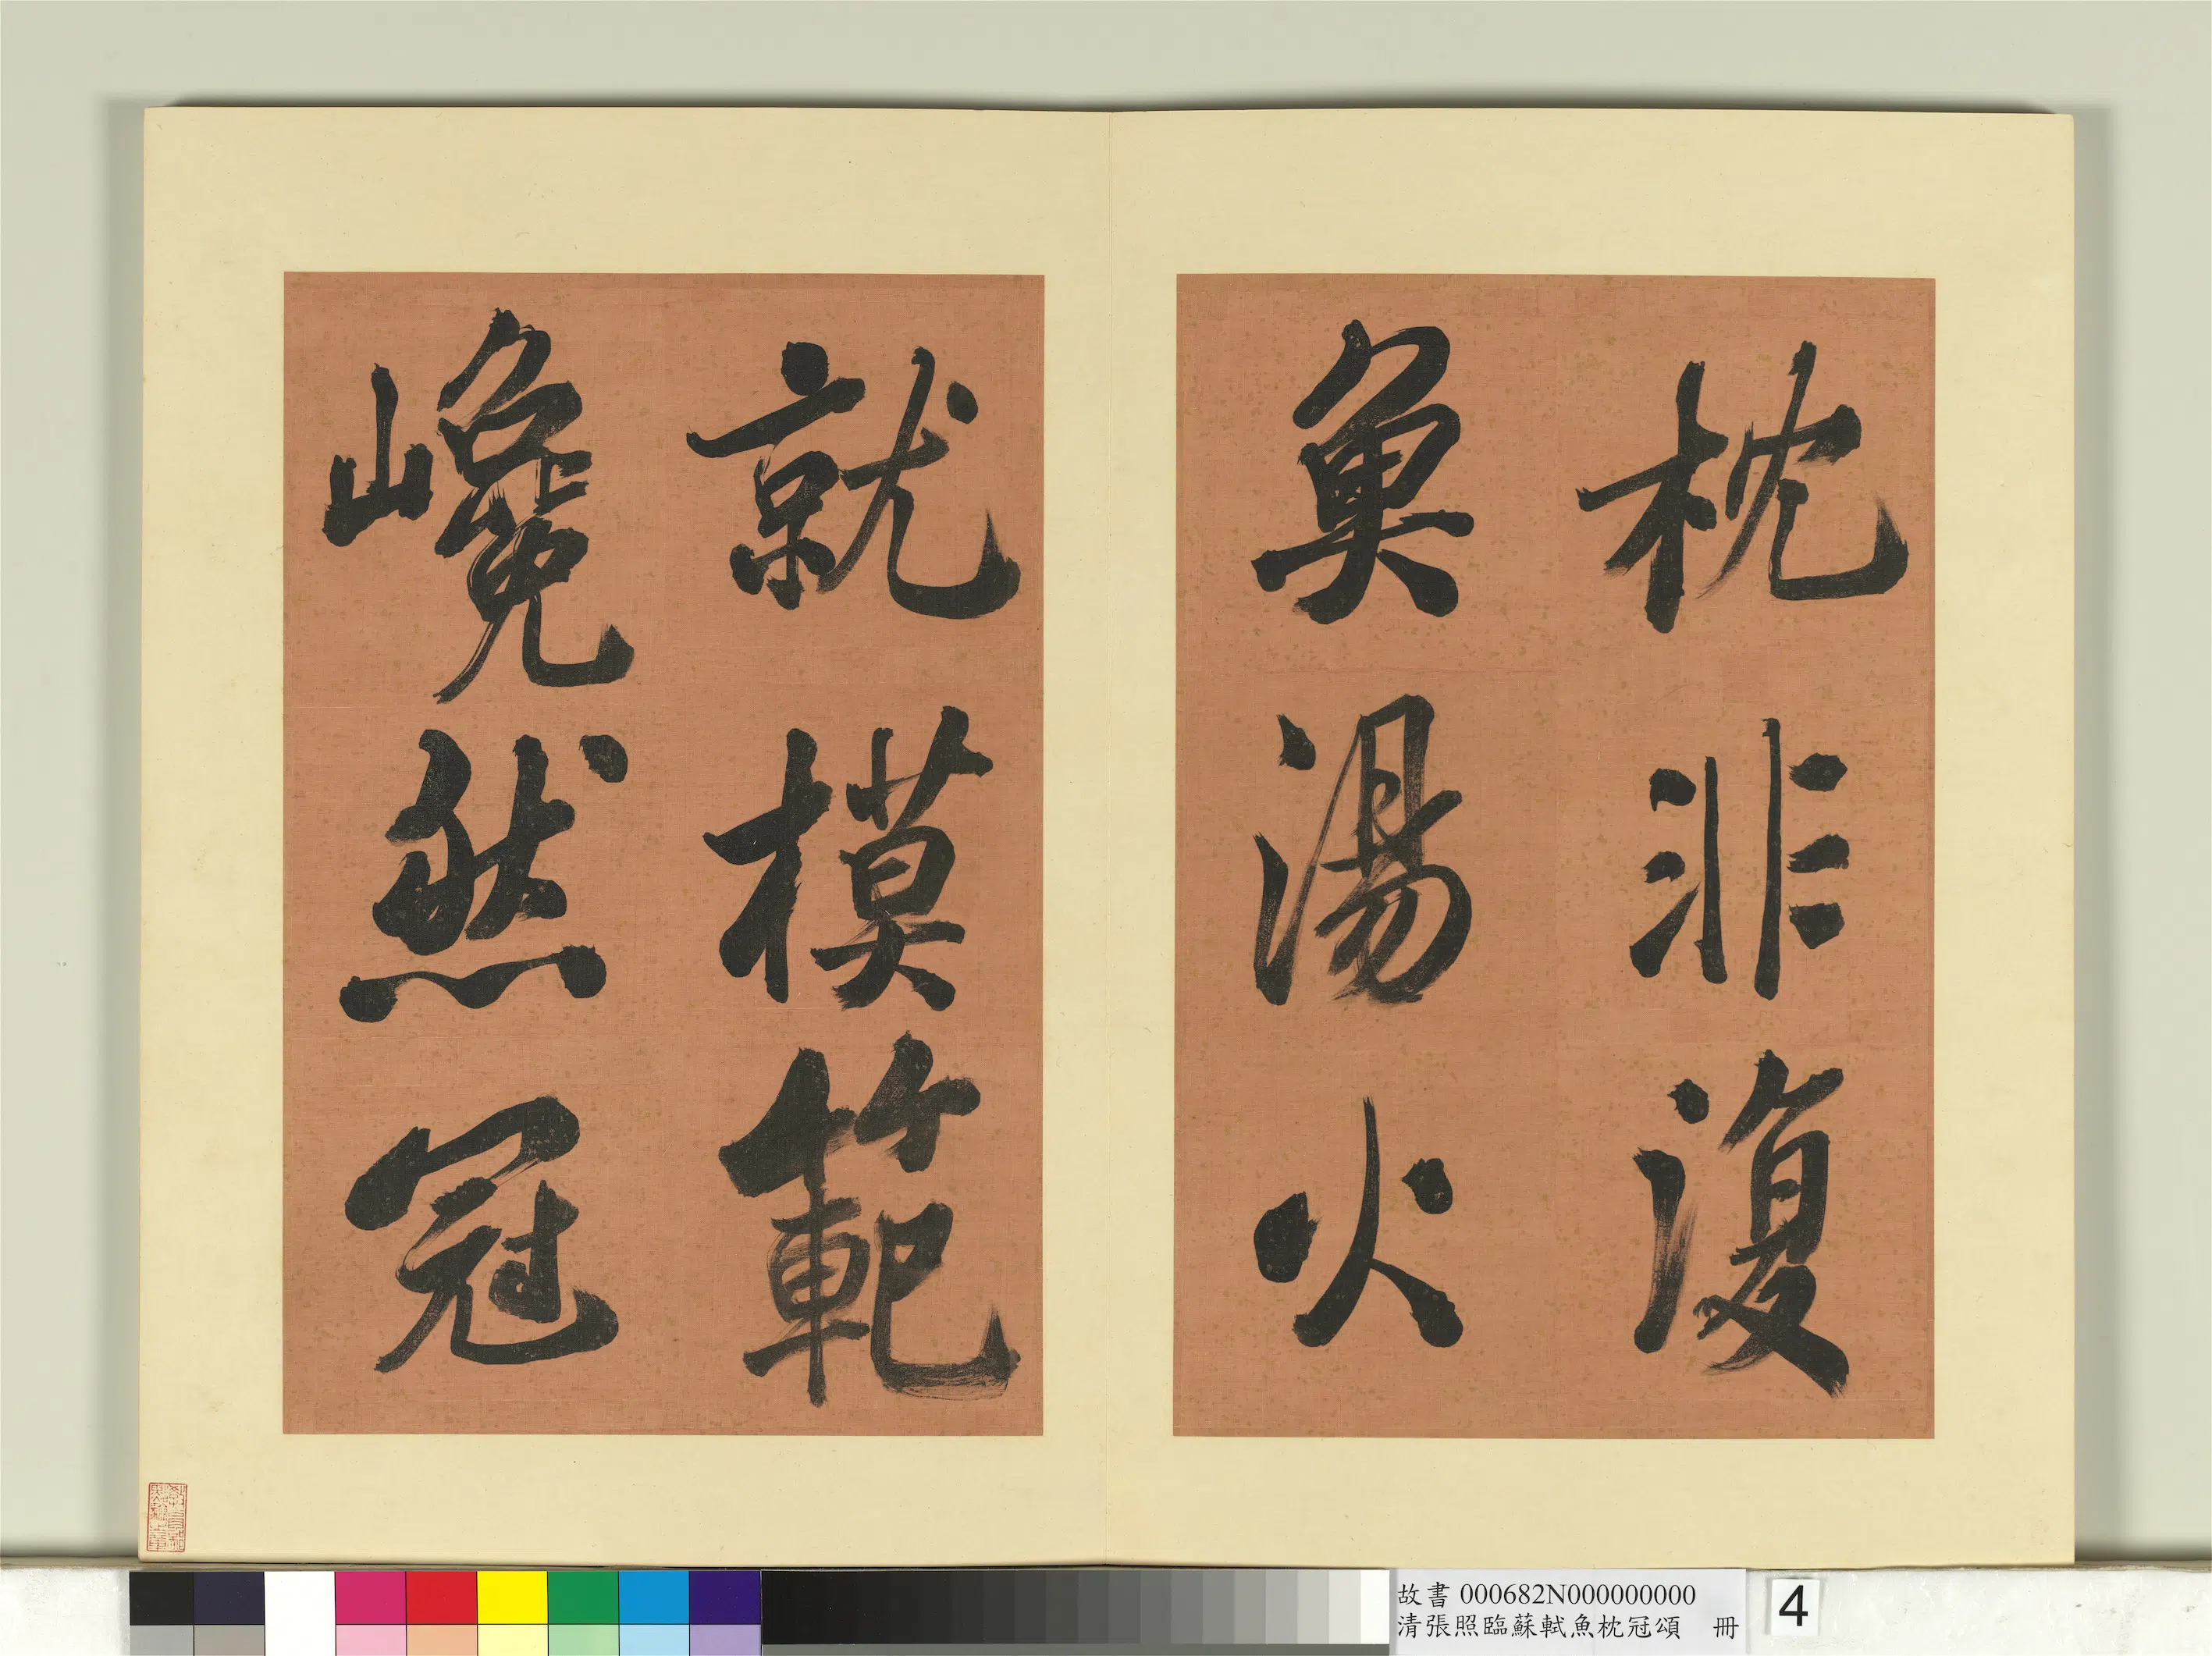 枕非復
魚湯火
就模範
巉然冠
故書 000682N000000000
清張照臨蘇軾魚枕冠頌 冊
4